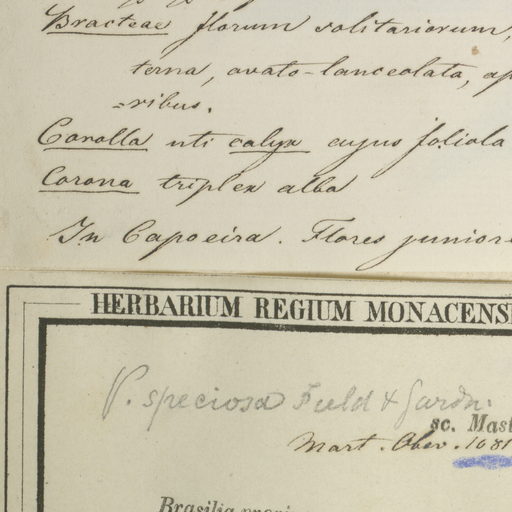 Bracteae florum solitariorum,
terna, ovato-lanceolata, ap
=ribus.
Corolla uti calyx cujus foliola
Corona triplex alba
In Capoeira. Flores juniore
HERBARIUM REGIUM MONACENS
P. speciosa Field & Gardn.
sc. Mast
Mart. Obser. 1081
Brasilia